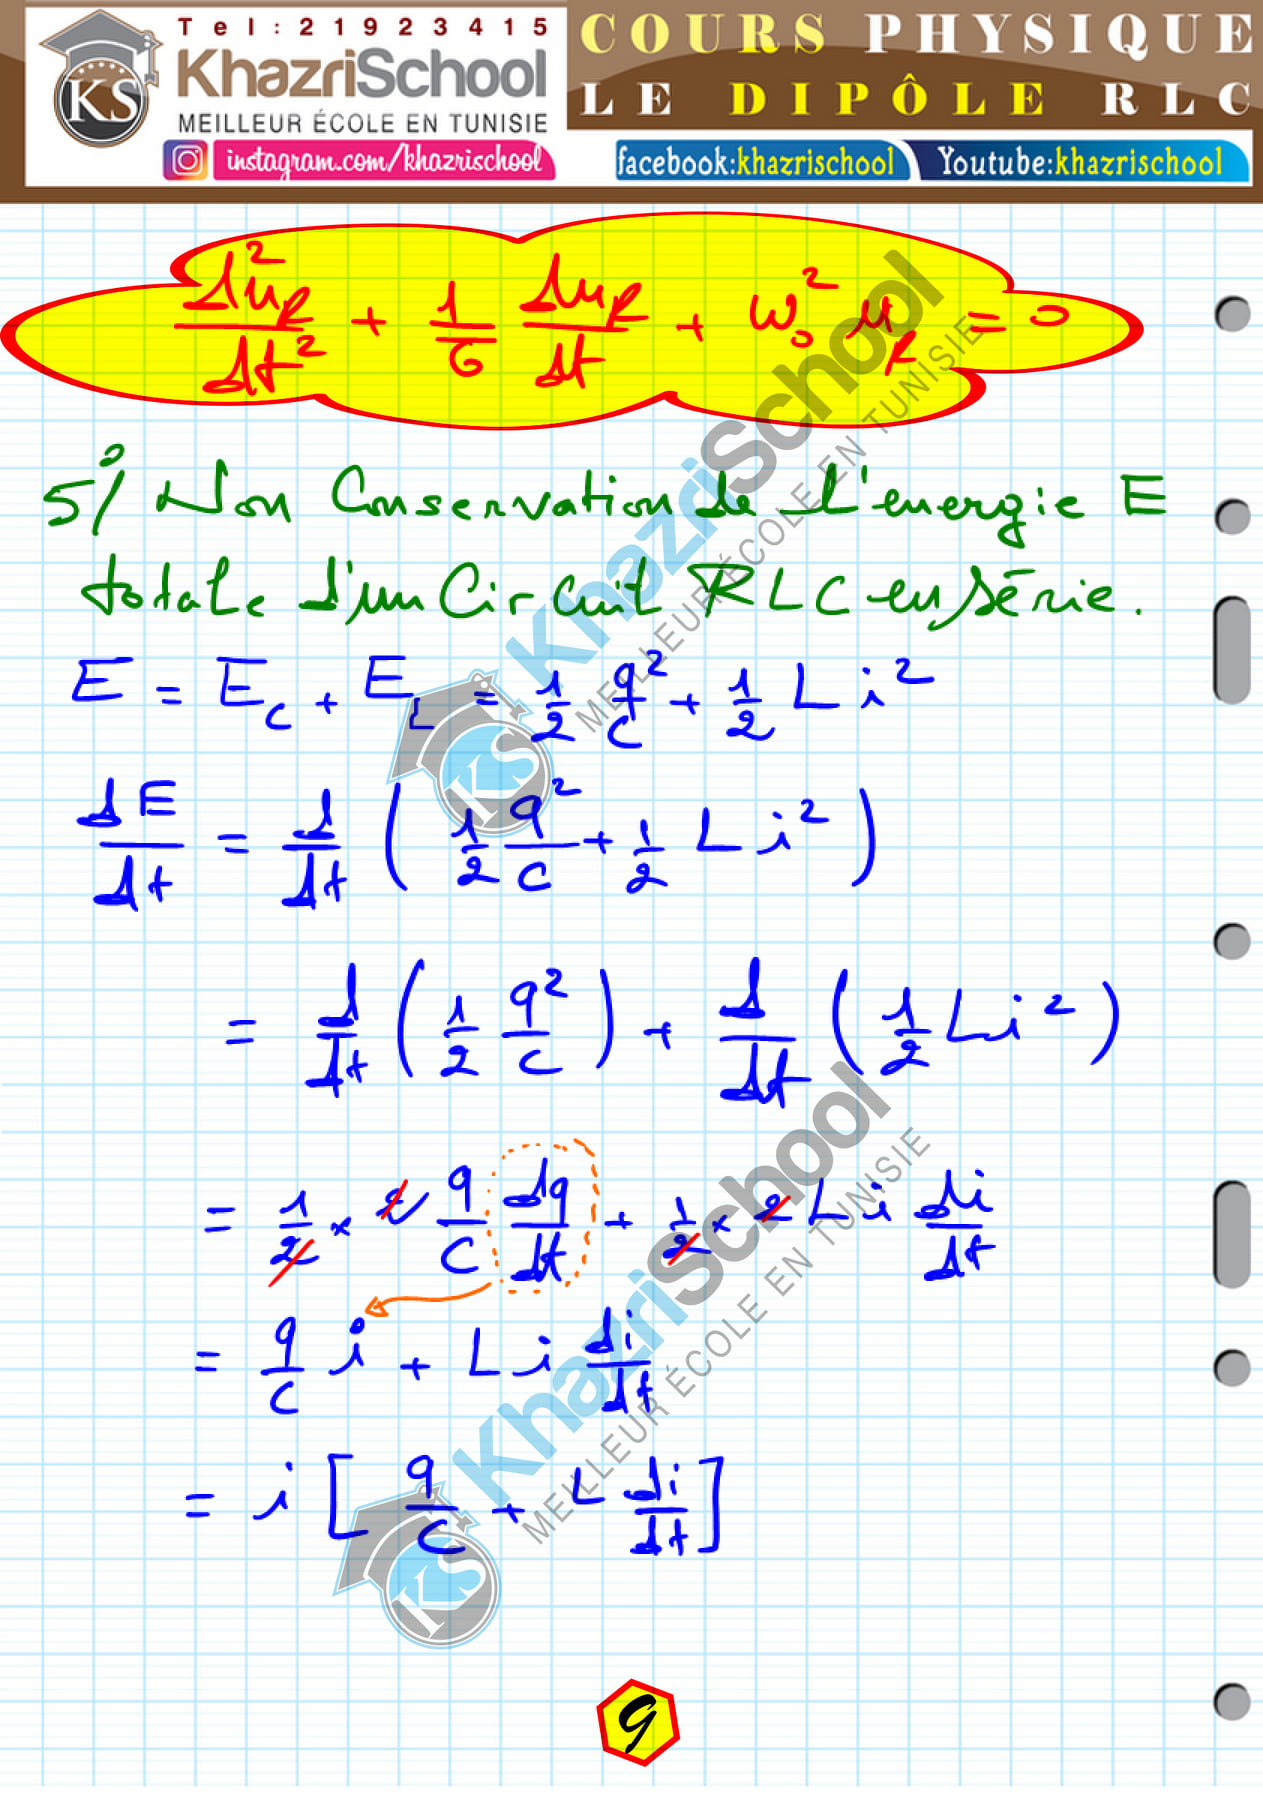 Tel:21923415
KhazriSchool
MEILLEUR ÉCOLE EN TUNISIE
instagram.com/khazrischool
COURS PHYSIQUE
LE DIPÔLE RLC
facebook:khazrischool
Youtube:khazrischool
KS
d²u_R/dt² + 1/τ du_R/dt + ω₀² u_R = 0
5°/ Non Conservation de l'énergie E
totale d'un Circuit RLC en série.
E = E_C + E_L = 1/2 q²/C + 1/2 L i²
dE/dt = d/dt ( 1/2 q²/C + 1/2 L i² )
= d/dt ( 1/2 q²/C ) + d/dt ( 1/2 L i² )
= 1/2 × 2 q/C dq/dt + 1/2 × 2 L i di/dt
= q/C i + L i di/dt
= i [ q/C + L di/dt ]
KhazriSchool
MEILLEUR ÉCOLE EN TUNISIE
KS
KhazriSchool
MEILLEUR ÉCOLE EN TUNISIE
KS
9